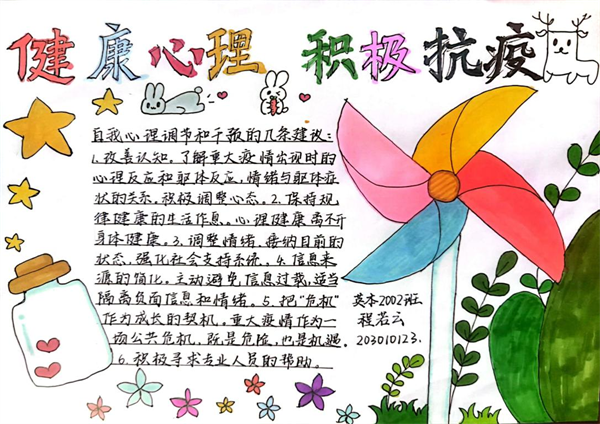 健康心理 积极抗疫
自我心理调节和干预的几条建议:
1.改善认知,了解重大疫情出现时的
心理反应和躯体反应,情绪与躯体症
状的关系,积极调整心态。2.保持规
律健康的生活作息。心理健康离不开
身体健康。3.调整情绪,接纳目前的
状态,强化社会支持系统。4.信息来
源的简化。主动避免信息过载,适当
隔离负面信息和情绪。5.把“危机”
作为成长的契机。重大疫情作为一
场公共危机,既是危险,也是机遇。
6.积极寻求专业人员的帮助。
英本2002班
程若云
203010123.